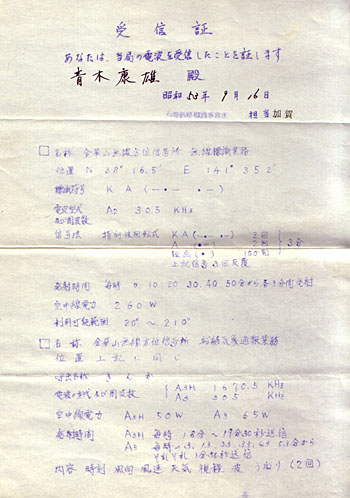 受信証
あなたは、当局の電波を受信したことを証します
青木康雄 殿
昭和 53年 9月 16日
担当 加賀
名称 金華山無線方位信号所 無線標識業務
位置 N 38° 16.5' E 141° 35.2'
標識符号 K A (-・- ・-)
電波型式及び周波数 A2 305 KHz
信号法 指向性回転式 K A (-・- ・-) 2回
2回
短点 (・) 100回
3分
上記信号3回反覆
発射時間 毎時 0.10.20.30.40.50分から各3分間発射
空中線電力 260W
利用可能範囲 20°~210°
名称 金華山無線方位信号所 船舶気象通報業務
位置 上記に同じ
呼出名称 きんか
電波の型式及び周波数 A3H 1670.5 KHz
A3 305 KHz
空中線電力 A3H 50W A3 65W
発射時間 A3H 毎時 18分~19分30秒送信
A3 毎時
それぞれ1分30秒送信
内容 時刻 風向 風速 天気 視程 波 うねり (2回)